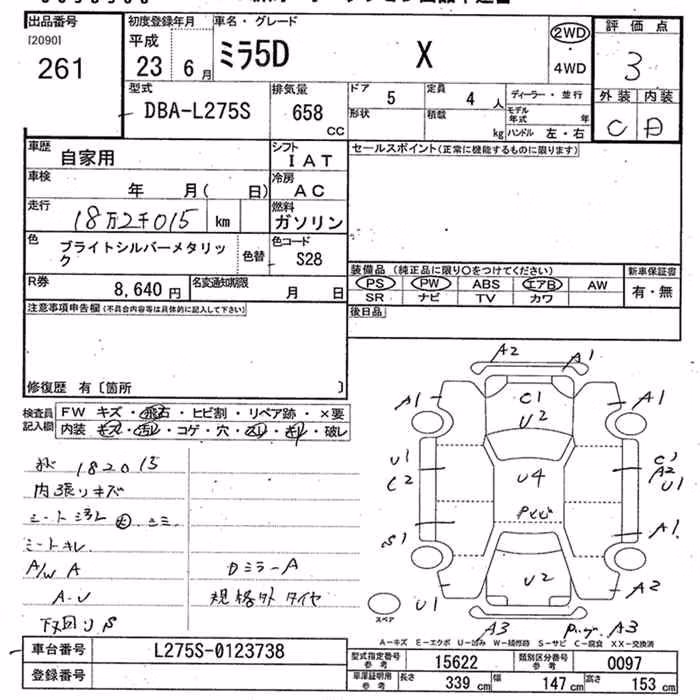 出品番号 初度登録年月 車名・グレード 評価点
[2090] 平成 ミラ5D X 2WD 3
261 23年 6月 4WD
外装 内装
型式 排気量 ドア 5 定員 4人 ディーラー・並行 C B
DBA-L275S 658 CC 形状 積載 kg モデル年式 年
ハンドル 左・右
車歴 自家用 シフト IAT セールスポイント(正常に機能するものに限ります)
車検 年 月( 日) 冷房 AC
走行 18万2千015 km 燃料 ガソリン
色 ブライトシルバーメタリック 色替 色コード S28
装備品 (純正品に限り○をつけてください) 新車保証書
R券 8,640円 名変通知期限 月 日 PS PW ABS エアB AW 有・無
SR ナビ TV カワ
注意事項申告欄(不具合内容等は具体的に記入して下さい) 後日品
修復歴 有〔箇所 〕
検査員 FW キズ・飛石・ヒビ割・リペア跡・×要
記入欄 内装 キズ・汚レ・コゲ・穴・スレ・キレ・破レ
A2 A1
A1 C1 A1
U2
U1 C1
C2 U4 A2
U1
S1 A1
U2 A2
U1
A3 A3
182015
内張りキズ
シート
シートキレ
A/W A DミラーA
A・U 規格外タイヤ
下回りS
スペア
A-キズ E-エクボ U-凹み W-補修跡 S-サビ C-腐食 XX-交換済
車台番号 L275S-0123738 型式指定番号 参考 15622 類別区分番号 参考 0097
登録番号 車庫証明用 参考 長さ 339cm 幅 147cm 高さ 153cm